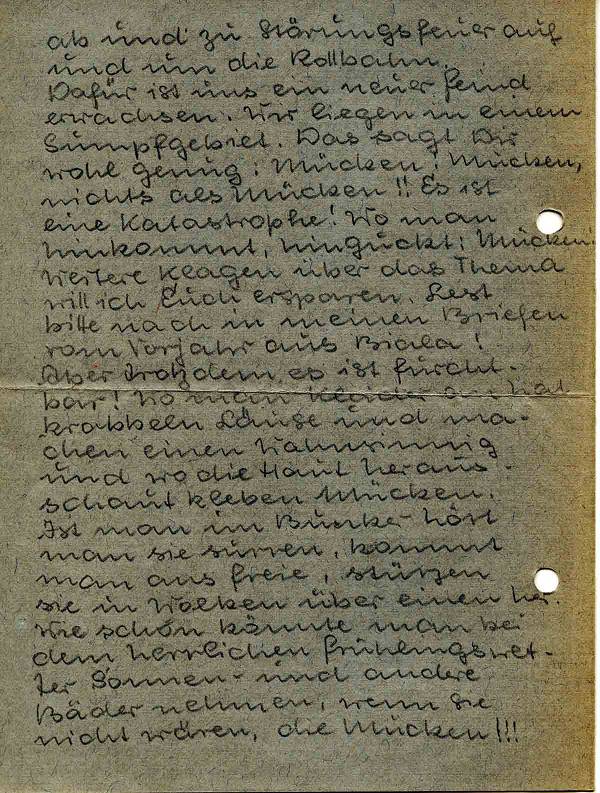 ab und zu Störungsfeuer auf
und um die Rollbahn.
Dafür ist uns ein neuer Feind
erwachsen. Wir liegen in einem
Sumpfgebiet. Das sagt Dir
wohl genug: Mücken! Mücken,
nichts als Mücken!! Es ist
eine Katastrophe! Wo man
hinkommt, hinguckt: Mücken!
Weitere Klagen über das Thema
will ich Euch ersparen. Lest
bitte nach in meinen Briefen
vom Vorjahr aus Biala!
Aber trotzdem, es ist furcht-
bar! Wo man Kleider an hat
krabbeln Läuse und ma-
chen einen wahnsinnig
und wo die Haut heraus-
schaut kleben Mücken.
Ist man im Bunker hört
man sie surren, kommt
man ans freie, stürzen
sie in Wolken über einen her.
Wie schön könnte man bei
dem herrlichen Frühlingswet-
ter Sonnen- und andere
Bäder nehmen, wenn sie
nicht wären, die Mücken!!!